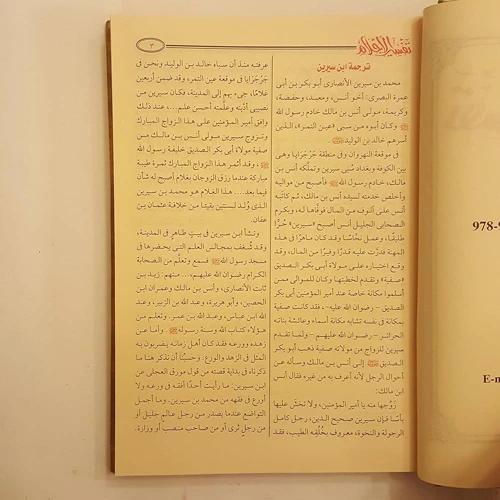 تفسير الأحلام
٣
ترجمة ابن سيرين
محمد بن سيرين الأنصارى أبو بكر بن أبى
عمرة البصرى: أخو أنس، ومعبد، وحفصة،
وكريمة، مولى أنس بن مالك خادم رسول الله
ﷺ وكان أبوه من سبى «عين التمر»، الذين
أسرهم خالد بن الوليد
فى موقعة النهروان وفى منطقة جَرْجَرَايا وهى
بين الكوفة وبغداد سُبى سيرين وتملكه أنس بن
مالك، خادم رسول الله ﷺ فأصبح من مواليه
وأخلص خدمته لسيده أنس بن مالك، ثم كاتبه
أنس على ألوف من المال فوفَّاها له، وبكرم
الصحابى الجليل أنس أصبح «سيرين» حُرًّا
طليقًا، وعمل نحَّاسًا وقد كان ماهرًا فى هذه
المهنة فدرّت عليه قدرًا وفيرًا من المال، وقد
وقع اختياره على مولاة أبى بكر الصديق
«صفية» وتقدم لخطبتها وكان للموالى ممن
أسلموا مكانة خاصة عند أمير المؤمنين أبى بكر
الصديق - رضوان الله عليه -، فقد كانت صفية
بمكانة فى نفسه تشابه مكانة أسماء وعائشة بناته
الحرائر - رضوان الله عليهم - ولمَّا تقدم
سيرين للزواج من مولاته صفية ذهب أبو بكر
الصديق إلى أنس بن مالك وسأله عن
أحوال الرجل لأنه أعرف به من غيره فقال أنس
ابن مالك:
زَوِّجها منه يا أمير المؤمنين، ولا تخشَ عليها
بأسًا فإن سيرين صحيح الدين، رجل كامل
الرجولة والنخوة، معروف بخُلُقِه الطيب، فقد
عرفته منذ أن سباه خالد بن الوليد ونحن فى
جَرْجَرَايا فى موقعة عين التمر، وقد ضمن أربعين
غلامًا، جىء بهم إلى المدينة، فكان سيرين من
نصيبى أدّبته وعلَّمته أحسن علم.... عند ذلك
وافق أمير المؤمنين على هذا الزواج المبارك
وتزوج سيرين مولى أنس بن مالك من
صفية مولاة أبى بكر الصديق خليفة رسول الله
ﷺ، وقد أثمر هذا الزواج المبارك ثمرة طيبة
مباركة عندما رزق الزوجان بغلام أصبح له شأن
فيما بعد.... هذا الغلام هو محمد بن سيرين
الذى وُلد لسنتين بقيتا من خلافة عثمان بن
عفان.
ونشأ ابن سيرين فى بيت طاهر فى المدينة،
وقد شُغف بمجالس العلم التى يحضرها فى
مسجد رسول الله ﷺ فسمع وتعلَّم من الصحابة
الكرام رضوان الله عليهم،... منهم: زيد بن
ثابت الأنصارى، وأنس بن مالك وعمران ابن
الحصين، وأبو هريرة، وعبد الله بن الزبير، وعبد
الله ابن عباس، وعبد الله بن عمر. وتعلم من
هؤلاء كتاب الله وسنة رسوله ﷺ. وأما عن
زهده وورعه فقد كان أهل زمانه يضربون به
المثل فى الزهد والورع، وحسبُنا أن نذكر هنا ما
ذكرناه فى بداية قصته من قول مورق العجلى عن
ابن سيرين: ما رأيت أحدًا أفقه فى ورعه ولا
أورع فى فقهه من محمد بن سيرين. وما أجمل
التواضع عندما يصدر من رجل عالم جليل أو
من رجلٍ ثرى أو من صاحب منصب أو وزارة.
978-9
E-m